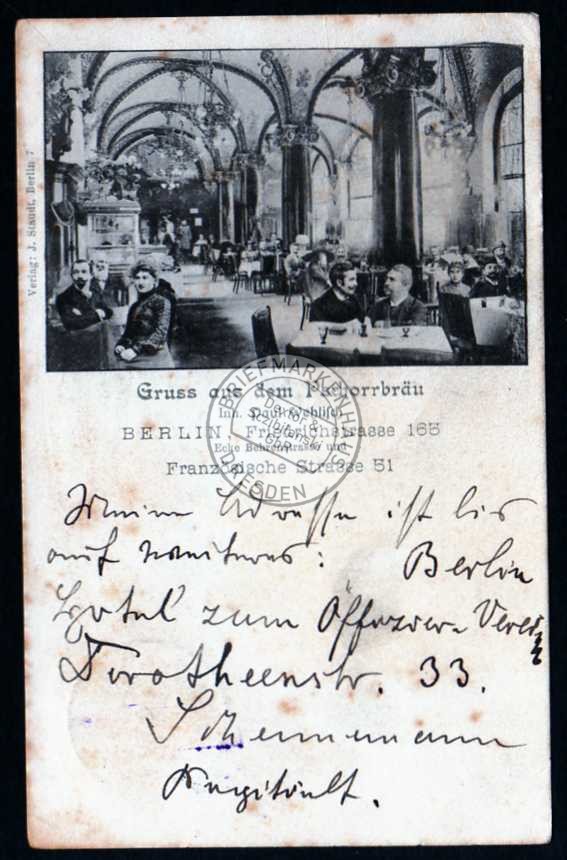 Verlag: J. Staudt, Berlin 7
Gruss aus dem Pschorrbräu
Inh.
BERLIN, Friedrichstrasse 165
Ecke Behrenstrasse und
Französische Strasse 51
BRIEFMARKENHAUS
DRESDEN
Meine Adresse ist bis
auf weiteres: Berlin
Hotel zum Offizier-Verein
Dorotheenstr. 33.
Schennemann